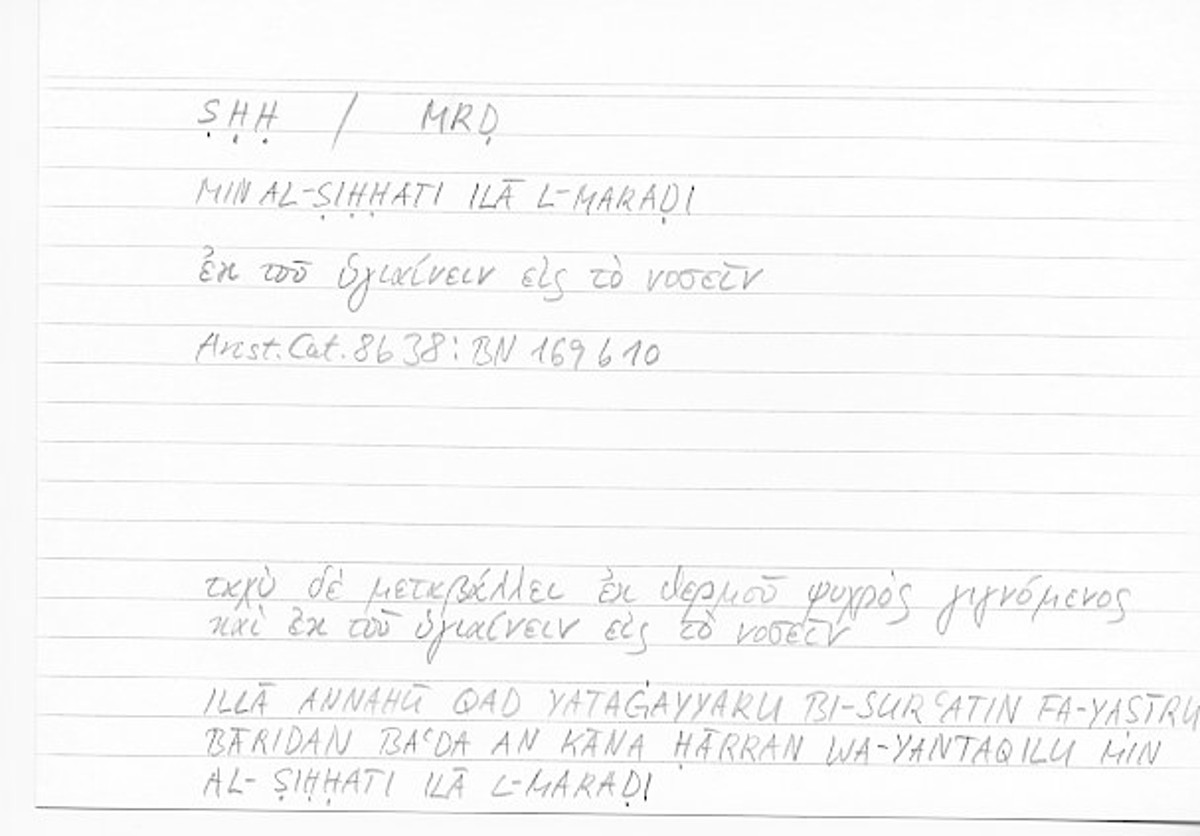 ṢḤḤ / MRḌ
MIN AL-ṢIḤḤATI ILĀ L-MARAḌI
ἐκ τοῦ ὑγιαίνειν εἰς τὸ νοσεῖν
Arist. Cat. 8b38: BN 169b10
ταχὺ δὲ μεταβάλλει ἐκ θερμοῦ ψυχρὸς γιγνόμενος
καὶ ἐκ τοῦ ὑγιαίνειν εἰς τὸ νοσεῖν
ILLĀ ANNAHŪ QAD YATAĠAYYARU BI-SURʿATIN FA-YAṢĪRU
BĀRIDAN BAʿDA AN KĀNA ḤĀRRAN WA-YANTAQILU MIN
AL-ṢIḤḤATI ILĀ L-MARAḌI